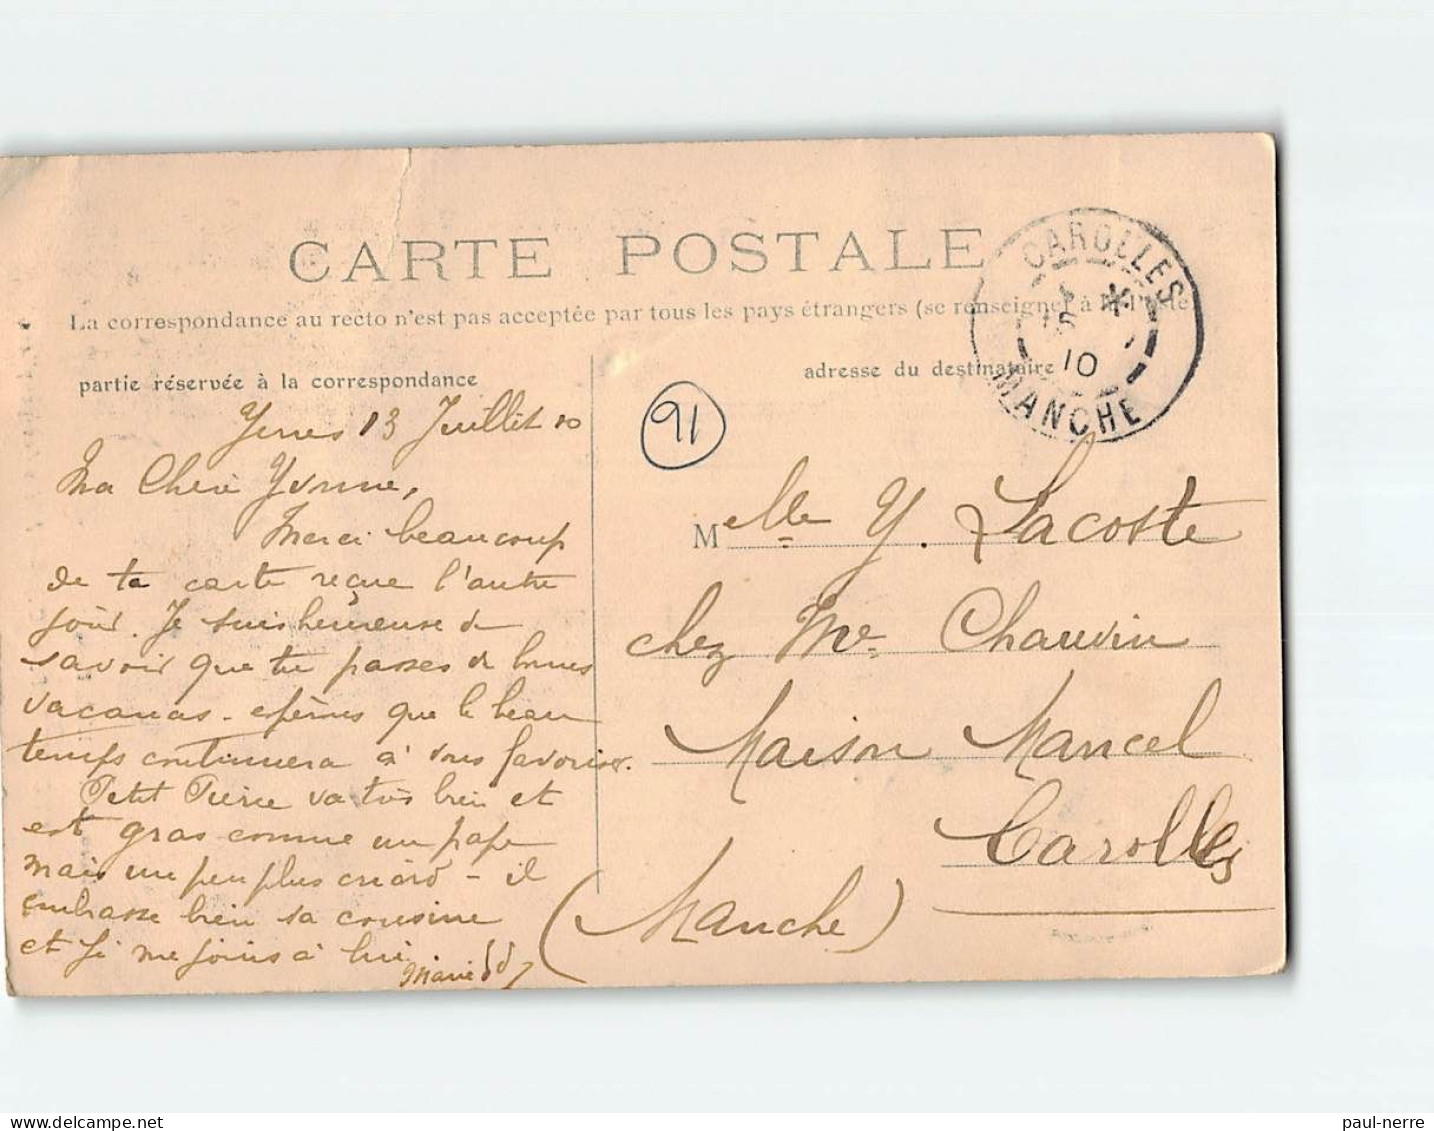 CARTE POSTALE
La correspondance au recto n'est pas acceptée par tous les pays étrangers (se renseigner à la Poste
partie réservée à la correspondance
adresse du destinataire
CAROLLES
15
10
MANCHE
91
Yerres 13 Juillet 10
Ma Chère Yvonne,
Merci beaucoup
de ta carte reçue l'autre
jour. Je suis heureuse de
savoir que tu passes de bonnes
vacances - espérons que le beau
temps continuera à vous favoriser.
Petit Pierre va très bien et
est gras comme un pape
mais un peu plus criard - il
embrasse bien sa cousine
et je me joins à lui
Marie
Melle Y. Lacoste
chez Me Chauvin
Maison Mancel
Carolles
(Manche)
paul-nerre